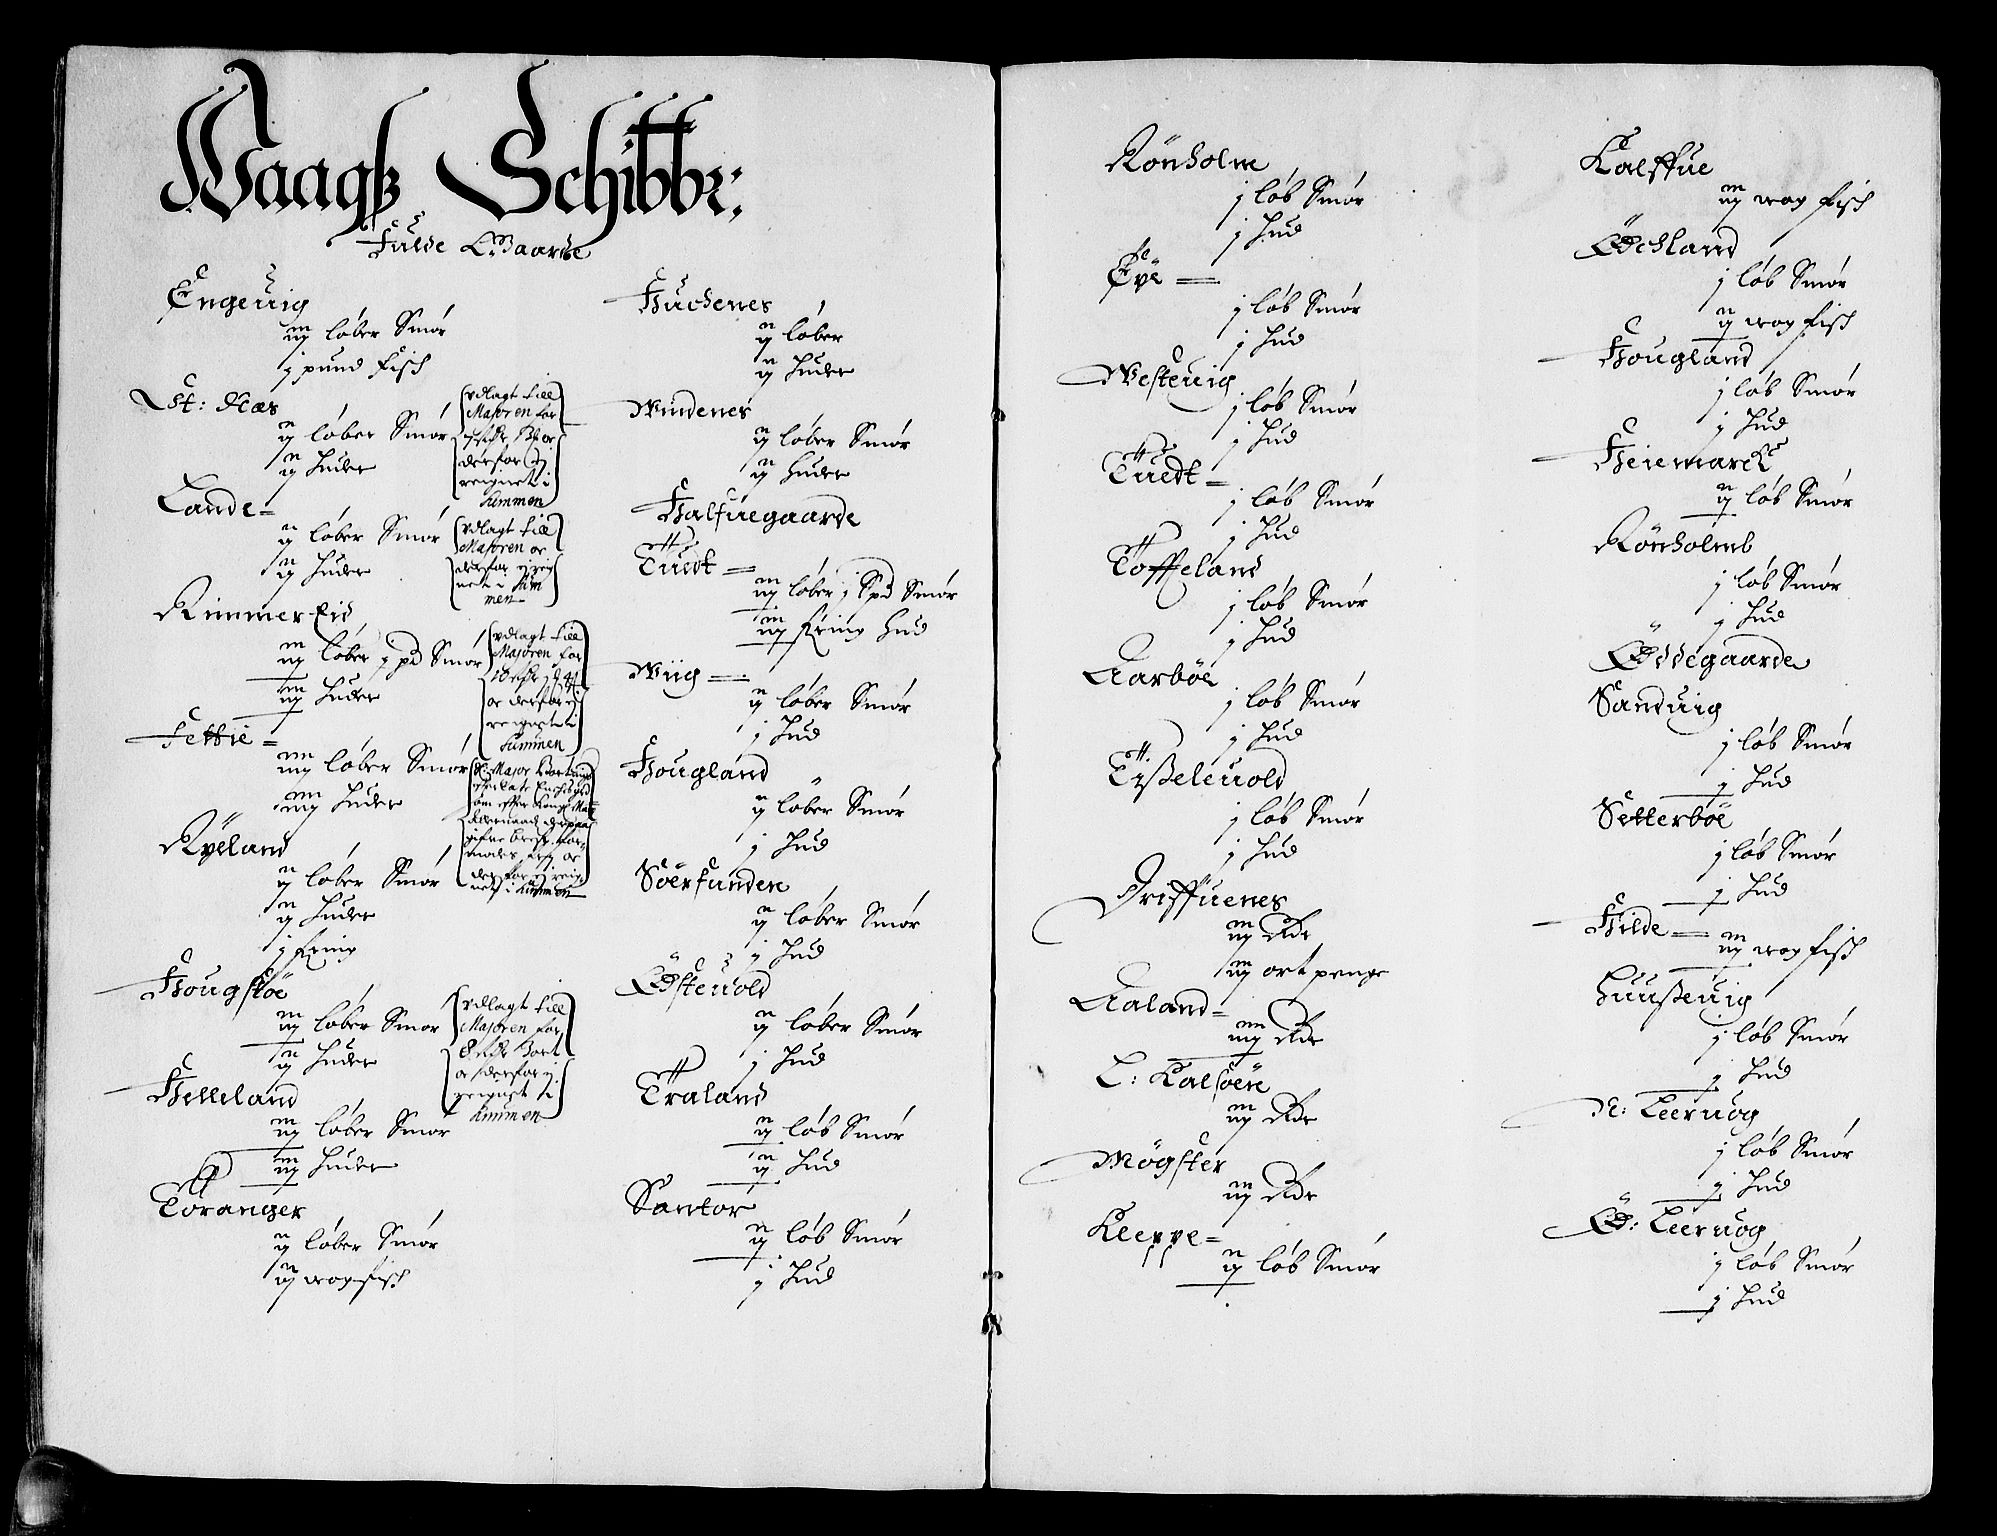 Waagß Schibbr:
Fulde Gaarde
Engeuig
iij løber Smør
j pund fisch
St: Næs
ij løber Smør
ij huder
vdlagt till
Majoren for
derfor ej
reignet i
Summen
Lande =
ij løber Smør
ij huder
vdlagt till
Majoren oc
derfor ej reig
net i Sum
men
Rimmereid
iij løber j pd Smør
iij huder
vdlagt till
Majoren for
oc derfor ej
reignet i
Summen
Tettie =
iiij løber Smør
iiij huder
H: Major
derfor ej reig
net i Summen
Røeland
ij løber Smør
ij huder
j fring
Hougstøe
iij løber Smør
ij huder
vdlagt till
Majoren for
oc derfor ej
reignet i
Summen
Helleland
iij løber Smør
iij huder
Toranger
ij løber Smør
ij wog fisch
Huchenes
ij løber
ij huder
Windenes
ij løber Smør
ij huder
Halfuegaarde
Tuedt =
iij løber j Spd Smør
iij fring hud
Wiig =
ij løber Smør
j hud
Hougland
ij løber Smør
j hud
Søerfunden
ij løber Smør
j hud
Østeuold
ij løber Smør
j hud
Traland
ij løb Smør
ij hud
Santor
ij løb Smør
j hud
Rønholm
j løb Smør
j hud
Epe =
j løb Smør
j hud
Westeuig
j løb Smør
j hud
Tuedt =
j løb Smør
j hud
Toffeland
j løb Smør
j hud
Aarbøe
j løb Smør
j hud
Tißeleuold
j løb Smør
j hud
Driffuenes
iij Rdr
iij ort penge
Aaland =
iiij Rdr
L: Kalsøen
iij Rdr
Møgster
iij Rdr
Kleppe =
ij løb Smør
Kalffue
iij wog fisch
Øchland
j løb Smør
ij wog fisch
Hougland
j løb Smør
j hud
Heiemarck
ij løb Smør
Rønholmb
j løb Smør
j hud
Ødegaarde
Sanduig
j løb Smør
j hud
Setterbøe
j løb Smør
j hud
Hilde =
iij wog fisch
Huußeuig
j løb Smør
j hud
N: Leeruog
j løb Smør
j hud
Ø: Leeruog
j løb Smør
j hud